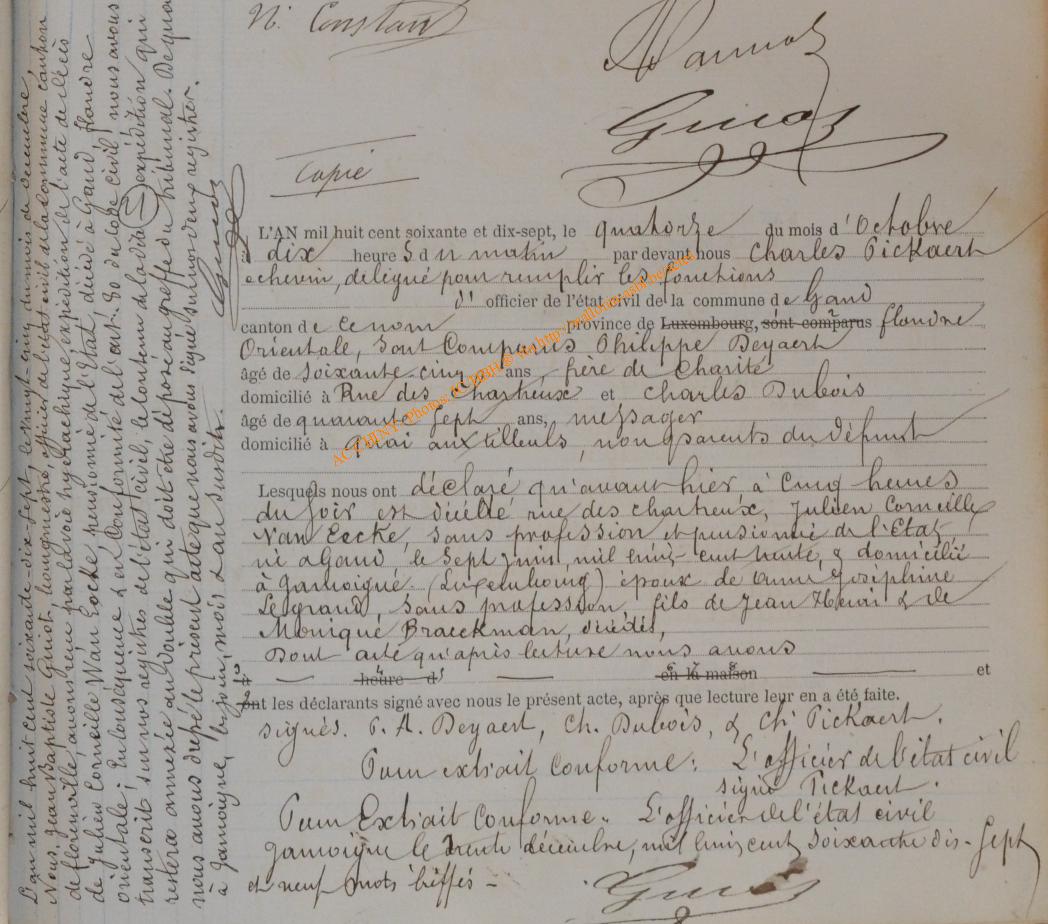 N. Constant
Guiot
Copie
L'AN mil huit cent soixante et dix-sept, le quatorze du mois d'Octobre
à dix heures du matin par devant nous Charles Pickaert
echevin, delegué pour remplir les fonctions
d' officier de l'état civil de la commune de Gand
canton de ce nom province de Luxembourg, sont comparus flandre
Orientale, Sont Comparus Philippe Deyaert
âgé de soixante-cinq ans, frère de Charité
domicilié à Rue des Chartreux et Charles Dubois
âgé de quarante sept ans, messager
domicilié à quai aux tilleuls, non parents du défunt
Lesquels nous ont déclaré qu'avant hier, à cinq heures
du soir est décédé rue des chartreux, Julien Corneille
Van Eecke, sans profession et pensionné de l'Etat,
né à Gand le sept juin, mil huit cent trente, & domicilié
à Jamoigne (Luxembourg) époux de Anne Joséphine
Legrand, sans profession, fils de Jean Henri & de
Monique Braeckman, décédés,
Dont acte qu'après lecture nous avons
à heure d en la maison et
ont les déclarants signé avec nous le présent acte, après que lecture leur en a été faite.
signés. P. A. Deyaert, Ch. Dubois, & Ch. Pickaert.
Pour extrait conforme: L'officier de l'état civil
signé Pickaert.
Pour Extrait Conforme. L'officier de l'état civil
Jamoigne le trente décembre, mil huit cent Soixante dix-Sept
et neuf mots biffés -
Guiot
L'an mil huit cent soixante-dix-sept, le vingt-cinq du mois de decembre,
Nous, Jean Baptiste Guiot, bourgmestre, officier de l'état civil de la commune canton
de florenville, avons reçu par la voie hyerarchique, expédition de l'acte de décès
de Julien Corneille Van Eecke, pensionné de l'Etat, décédé à Gand flandre
orientale; En conséquence & en Conformité de l'art. 80 du code civil nous avons
transcrit sur nos registres de l'état civil, le contenu de la dite expédition qui
restera annexée au double qui doit être déposé au greffe du tribunal. De quoi
nous avons dressé le présent acte que nous avons signé sur nos deux registres.
à Jamoigne, les jour, mois & an susdits.
Guiot